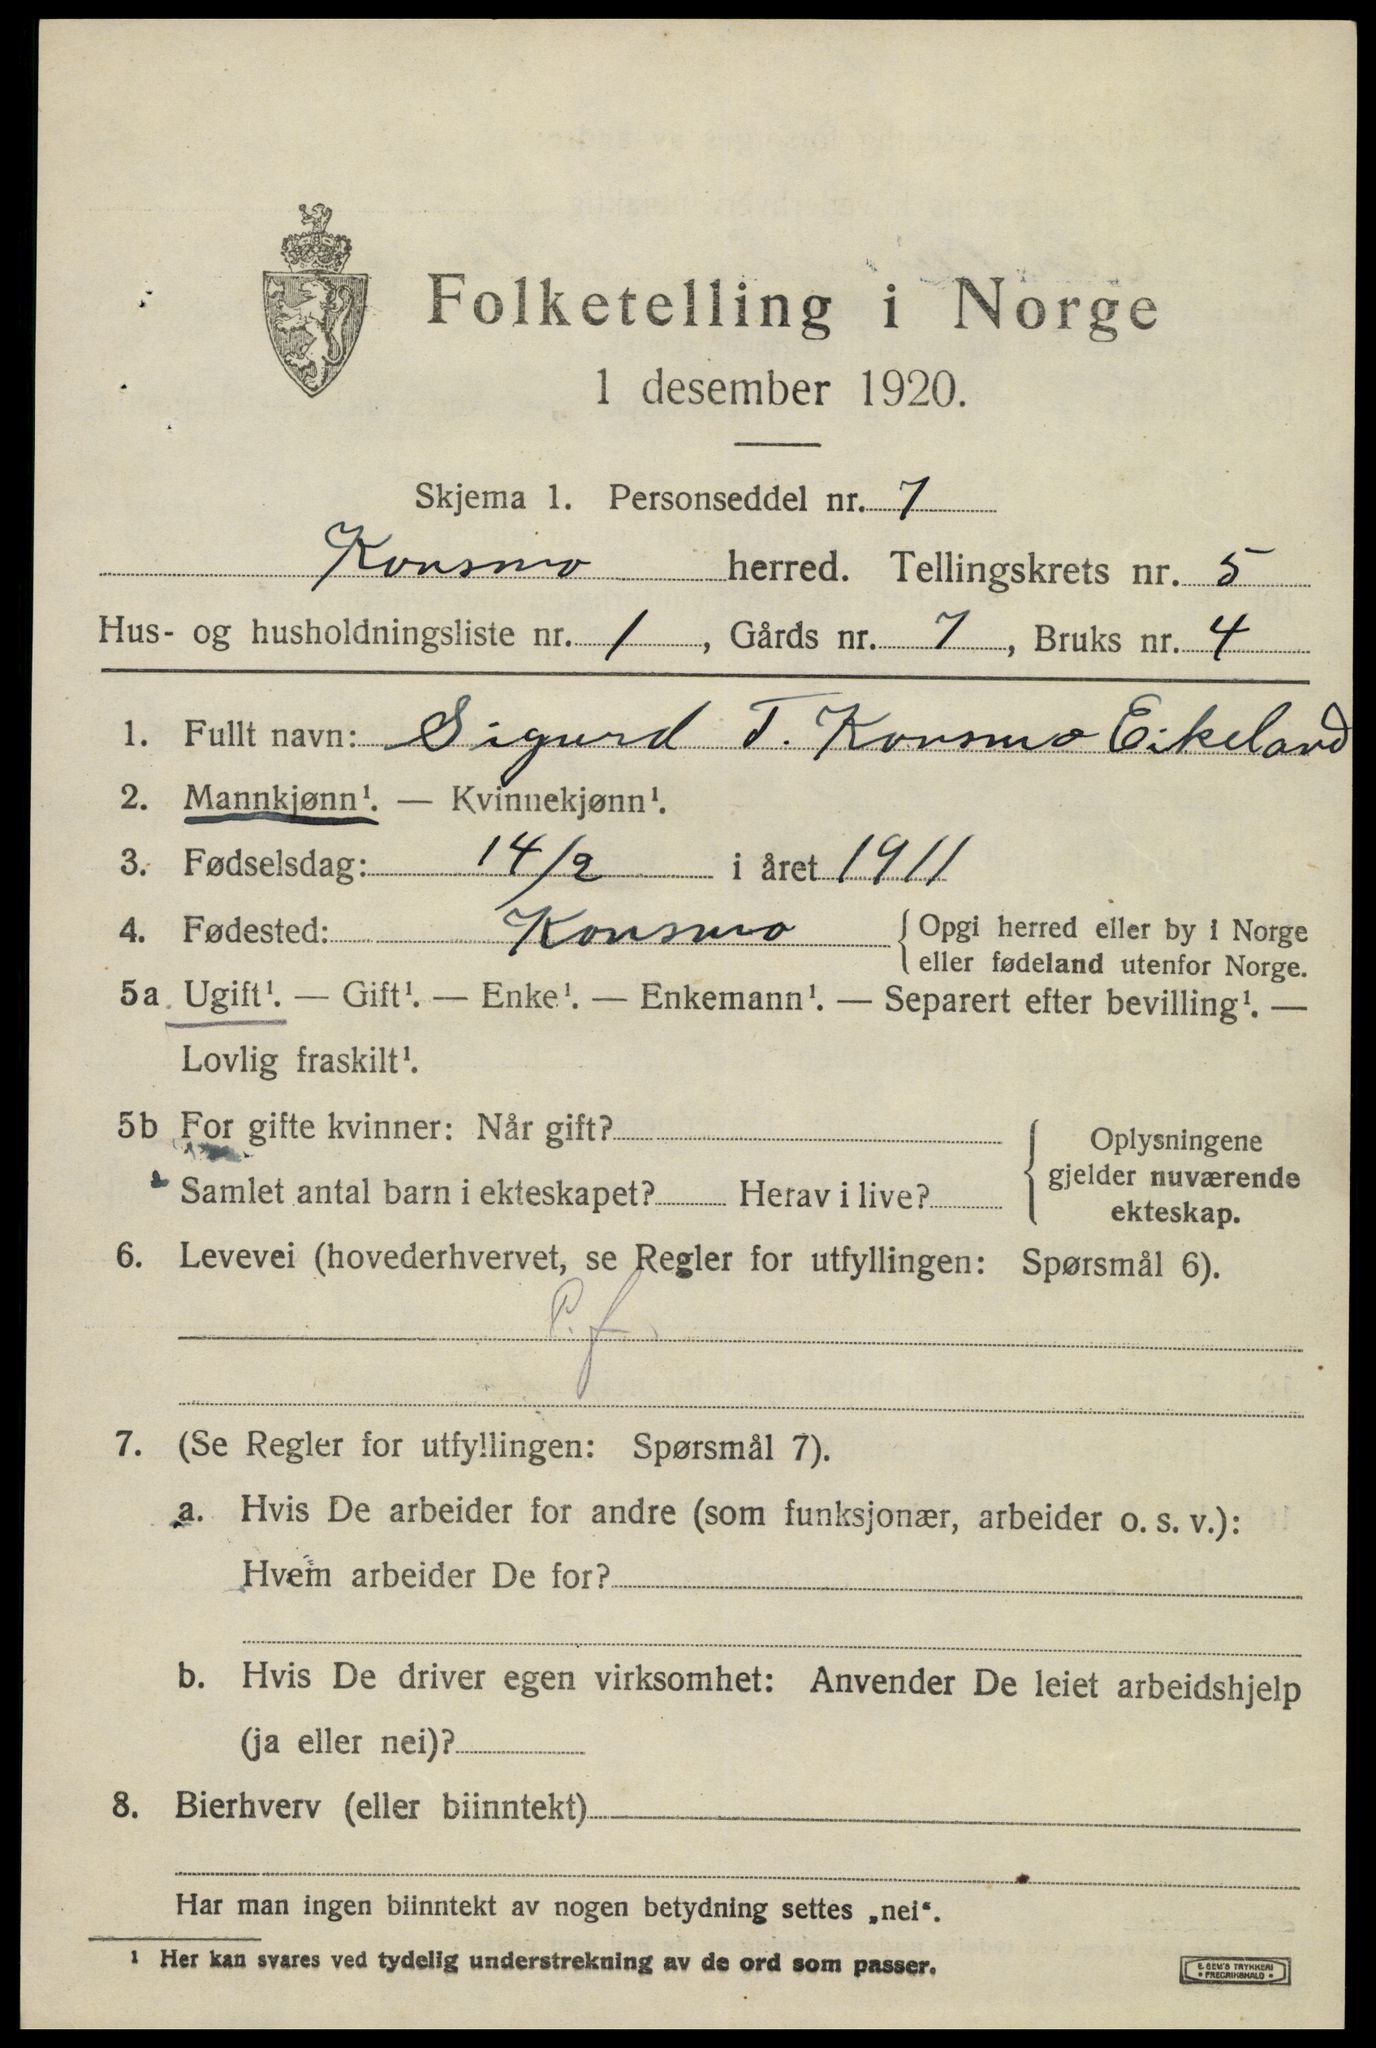 Folketelling i Norge
1 desember 1920.
Skjema 1. Personseddel nr. 7
Konsmo herred. Tellingskrets nr. 5
Hus- og husholdningsliste nr. 1, Gårds nr. 7, Bruks nr. 4
1. Fullt navn: Sigurd T. Konsmo Eikeland
2. Mannkjønn¹. — Kvinnekjønn¹.
3. Fødselsdag: 14/2 i året 1911
4. Fødested: Konsmo { Opgi herred eller by i Norge
eller fødeland utenfor Norge.
5a Ugift¹. — Gift¹. — Enke¹. — Enkemann¹. — Separert efter bevilling¹. —
Lovlig fraskilt¹.
5b For gifte kvinner: Når gift?
Samlet antal barn i ekteskapet? Herav i live?
Oplysningene
gjelder nuværende
ekteskap.
6. Levevei (hovederhvervet, se Regler for utfyllingen: Spørsmål 6).
P. f.
7. (Se Regler for utfyllingen: Spørsmål 7).
a. Hvis De arbeider for andre (som funksjonær, arbeider o. s. v.):
Hvem arbeider De for?
b. Hvis De driver egen virksomhet: Anvender De leiet arbeidshjelp
(ja eller nei)?
8. Bierhverv (eller biinntekt)
Har man ingen biinntekt av nogen betydning settes „nei“.
¹ Her kan svares ved tydelig understrekning av de ord som passer.
E. SEM'S TRYKKERI
FREDRIKSHALD